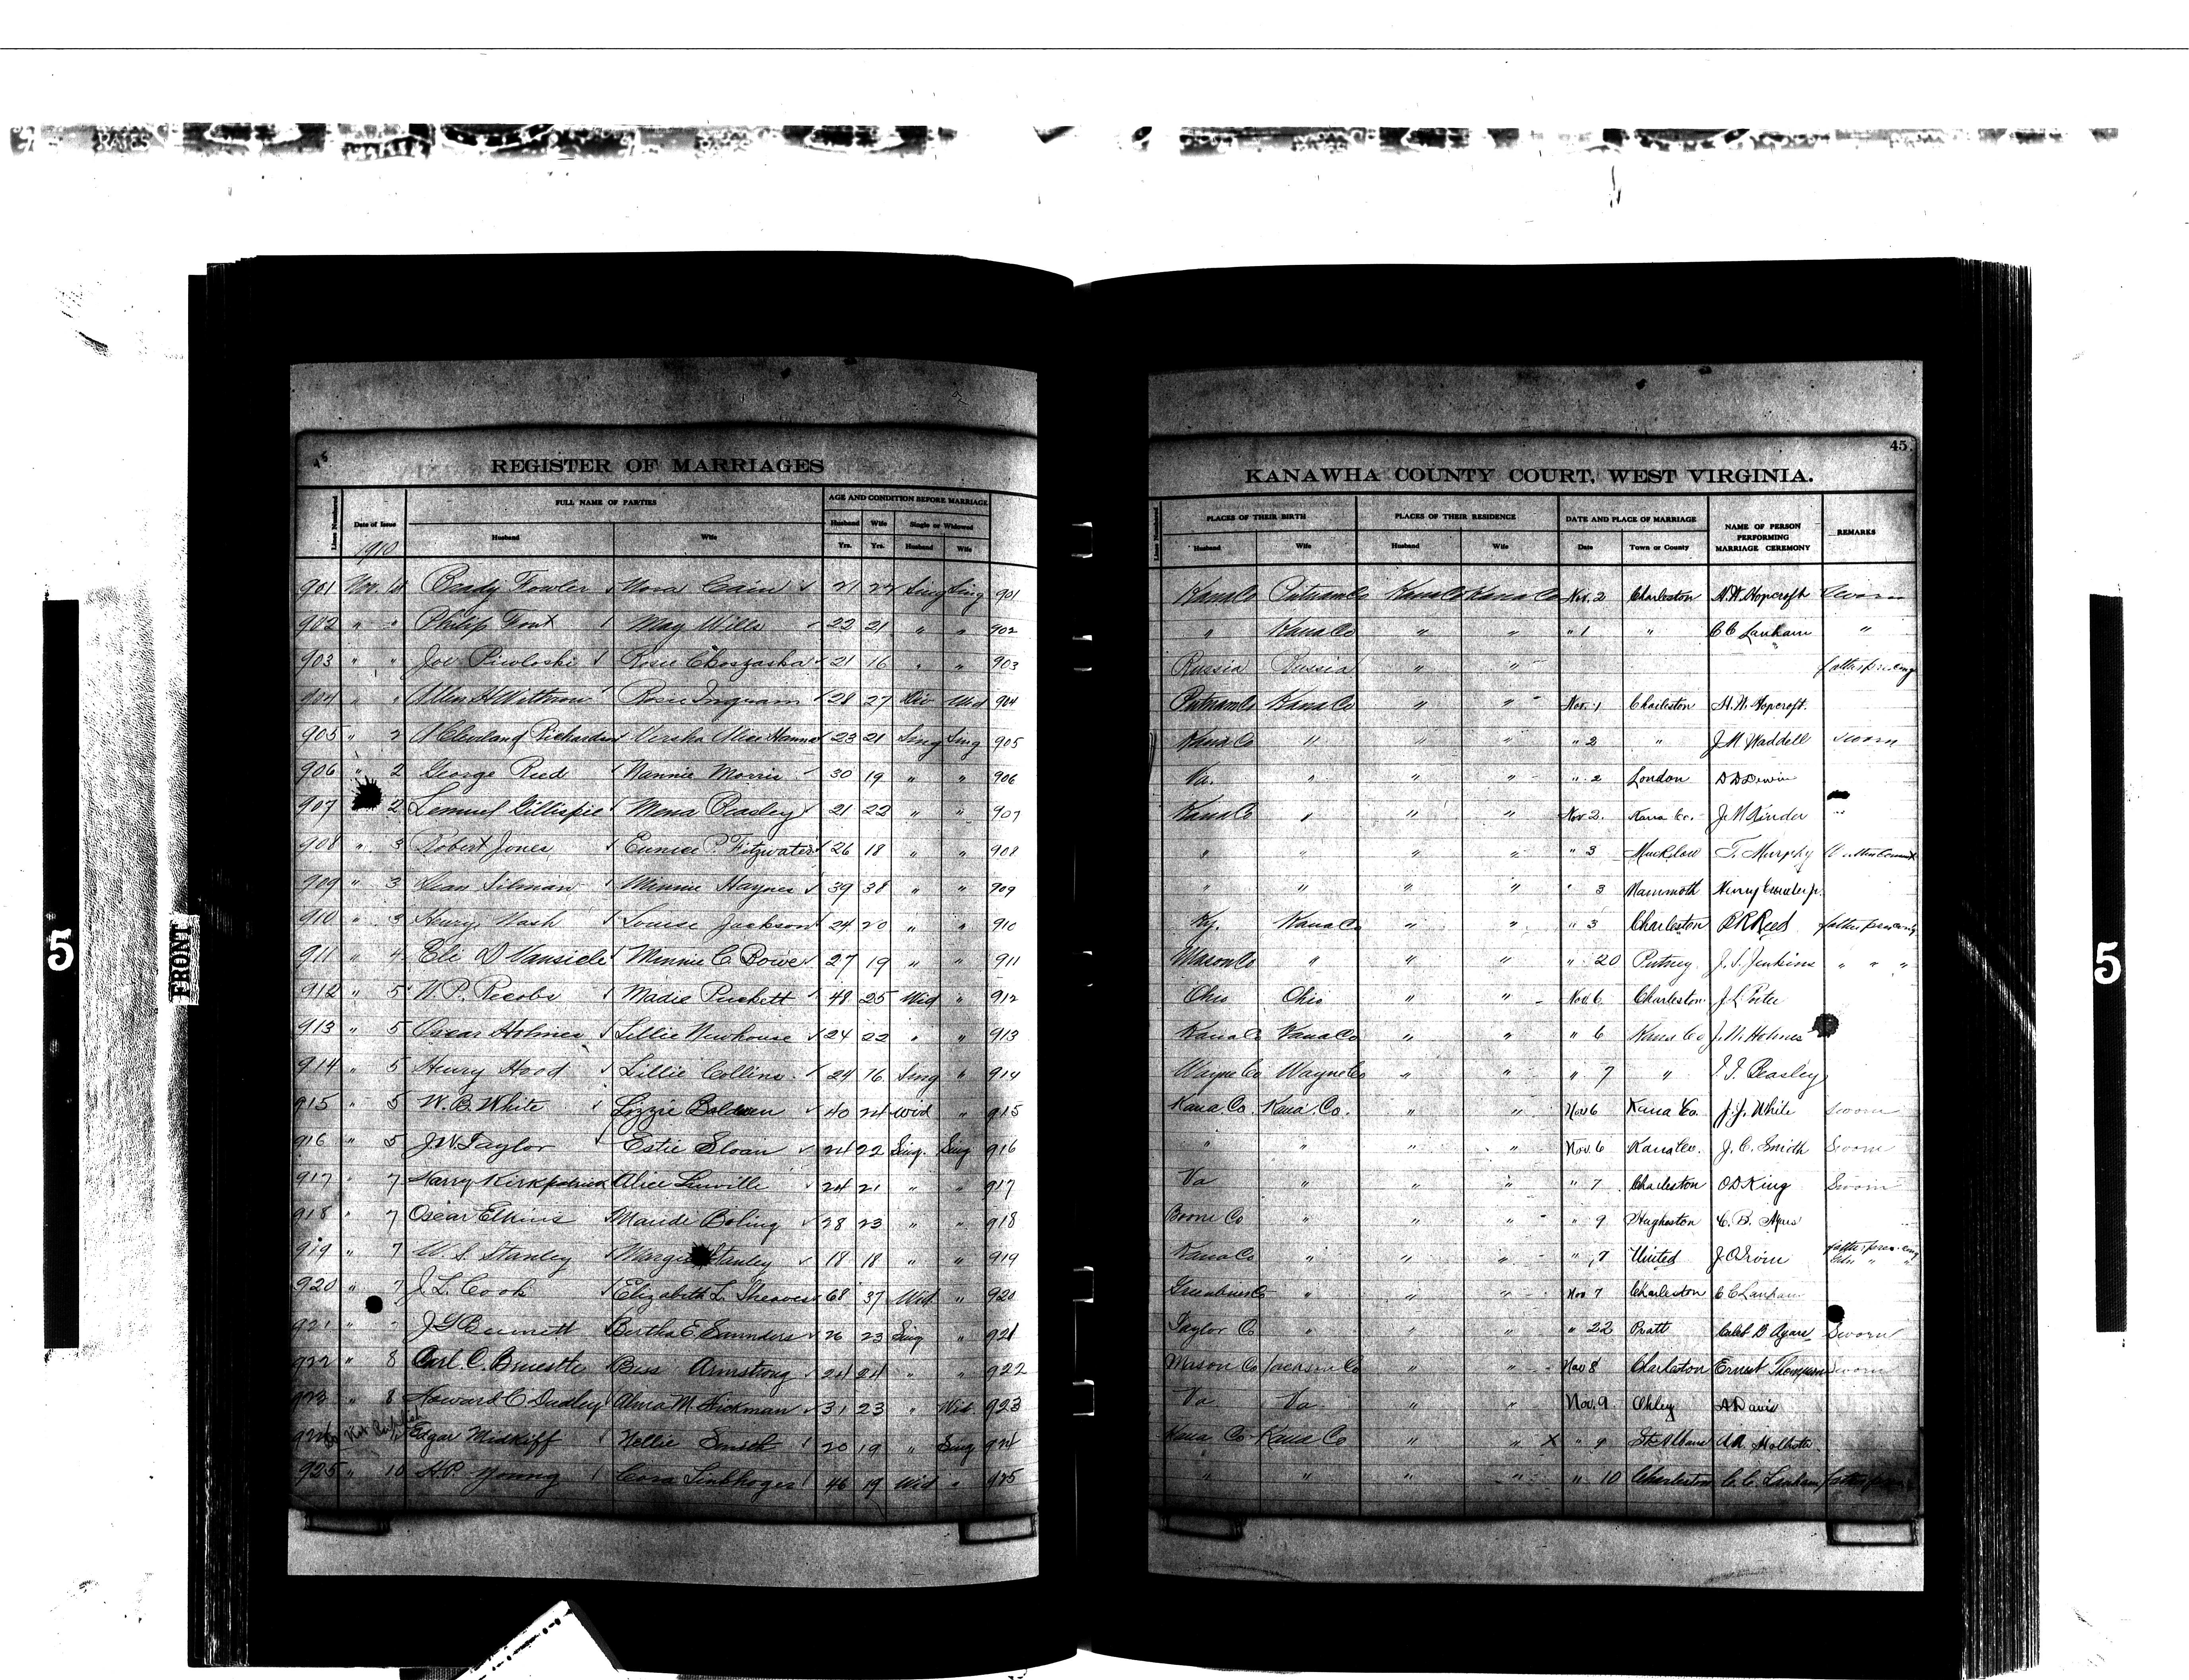 45
REGISTER OF MARRIAGES
Lines Numbered Date of Issue FULL NAME OF PARTIES AGE AND CONDITION BEFORE MARRIAGE
Husband Wife Husband Wife Single or Widowed
1910 Yrs. Yrs. Husband Wife
901 Nov. Brady Fowler Nora Cain 21 Sing Sing 901
902 " " Philip Font May Wills 22 21 " " 902
903 " " Joe Rosie 21 16 " " 903
904 " " Allen H Withrow Rosie Ingram 28 27 Div Wid 904
905 " 2 Cleveland Richardson Alice Hanna 23 21 Sing Sing 905
906 " 2 George Reed Nannie Morris 30 19 " " 906
907 2 Lemuel Gillispie Mona Beasley 21 22 " " 907
908 " 3 Robert Jones Eunice P. Fitzwater 26 18 " " 908
909 " 3 Minnie Haynes 39 38 " " 909
910 " 3 Henry Nash Louise Jackson 24 20 " " 910
911 " 4 Eli D Vansicle Minnie C. Bowe 27 19 " " 911
912 " 5 W. P. Madie Puckett 48 25 Wid " 912
913 " 5 Oscar Holmes Lillie Newhouse 24 22 " " 913
914 " 5 Henry Hood Lillie Collins 24 16 Sing " 914
915 " 5 W. B. White Lizzie Baldwin 40 24 Wid " 915
916 " 5 J W Taylor Estie Sloan 24 22 Sing. Sing 916
917 " 7 Harry Kirkpatrick Alice Linville 24 21 " " 917
918 " 7 Oscar Elkins Maude Boling 28 23 " " 918
919 " 7 W. S. Stanley Stanley 18 18 " " 919
920 " 7 J. L. Cook Elizabeth L. 68 37 Wid " 920
921 " " J G Bennett Bertha E. Saunders 26 23 Sing " 921
922 " 8 Carl C. Bess Armstrong 24 24 " " 922
923 " 8 Howard C Dudley Alma M. Hickman 31 23 " Wid. 923
924 Edgar Midkiff Nellie Smith 20 19 " Sing 924
925 " 10 H. P. Young Cora 46 19 Wid " 925
45
KANAWHA COUNTY COURT, WEST VIRGINIA.
Lines Numbered PLACES OF THEIR BIRTH PLACES OF THEIR RESIDENCE DATE AND PLACE OF MARRIAGE NAME OF PERSON PERFORMING MARRIAGE CEREMONY REMARKS
Husband Wife Husband Wife Date Town or County
Kana Co Putnam Co Kana Co Kana Co Nov. 2 Charleston H. W. Hopcroft Sworn
" Kana Co " " " 1 " C C Lanham "
Russia Russia " "
Putnam Co Kana Co " " Nov. 1 Charleston H. W. Hopcroft.
Kana Co " " " " 2 " J. M. Waddell Sworn
Va. " " " " 2 London
Kana Co " " " Nov 2. Kana Co. J. W. Ginder
" " " " " 3 Mucklow T. Murphy
" " " " " 3 Mammoth Henry
Ky. Kana Co " " " 3 Charleston R R Reed
Mason Co " " " " 20 Putney J. S. Jenkins " " "
Ohio Ohio " " Nov 6 Charleston J. L.
Kana Co Kana Co " " " 6 Kana Co J. W. Holmes
Wayne Co Wayne Co " " " 7 " Beasley
Kana Co. Kana. Co. " " Nov 6 Kana Co. J. J. White Sworn
" " " " Nov. 6 Kana Co. J. C. Smith Sworn
Va " " " " 7 Charleston O D King Sworn
Boone Co " " " " 9 Hugheston C. B.
Kana Co " " " " 7 United
Greenbrier Co " " " Nov 7 Charleston C C Lanham
Taylor Co " " " " 22 Pratt Caleb B Ayars Sworn
Mason Co Jackson Co " " Nov 8 Charleston Ernest Thompson Sworn
Va Va " " Nov. 9 Ohley A Davis
Kana Co Kana Co " " X " 9 St Albans
" " " " " 10 Charleston C. C. Lanham
5
FRONT
5